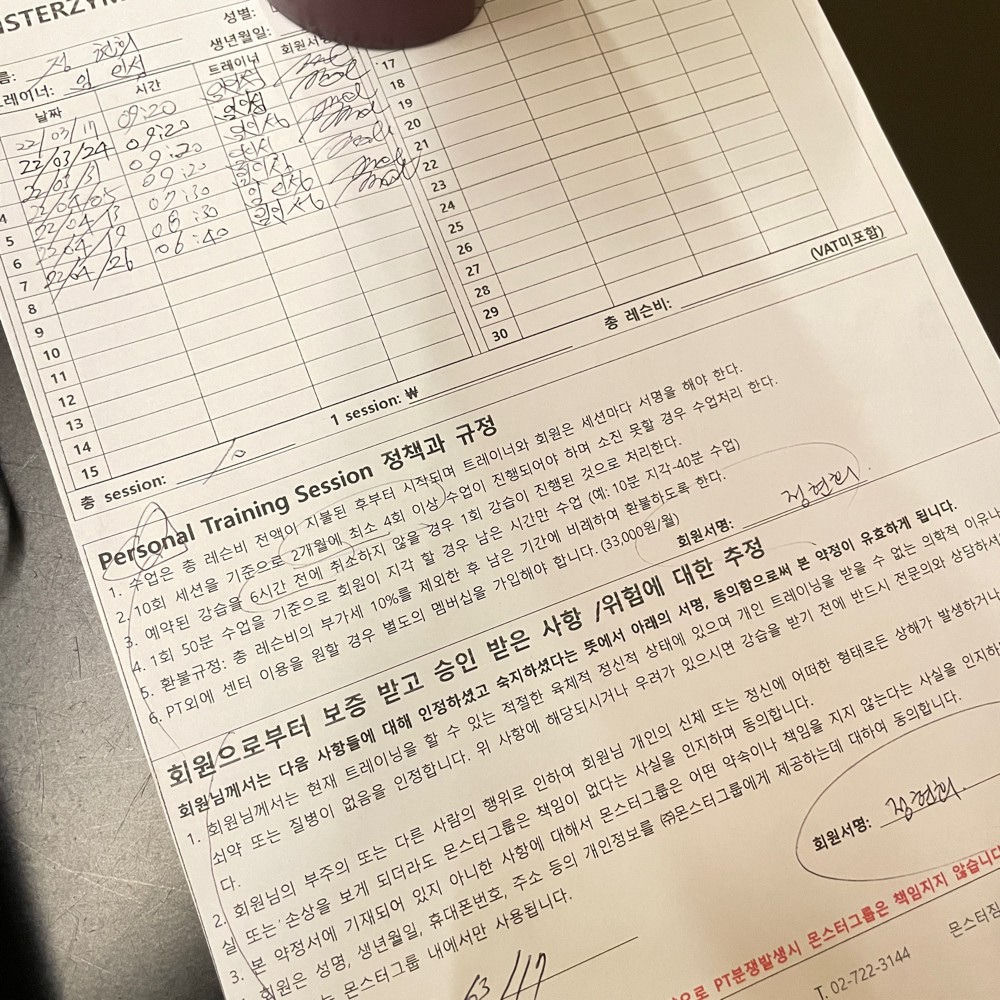 성별:
생년월일:
정 현희
트레이너: 임 의섭
날짜 시간 트레이너
22/03/17 09:20
22/03/24 09:20
09:20
4 22/04/05 09:20
5 22/04/13 07:30
6 22/04/19 08:30
7 22/04/26 06:40
8
9
10
11
12
13
14
15
17
18
19
20
21
22
23
24
25
26
27
28
29
30
(VAT미포함)
총 session: 10 1 session: ₩ 총 레슨비:
Personal Training Session 정책과 규정
1. 수업은 총 레슨비 전액이 지불된 후부터 시작되며 트레이너와 회원은 세션마다 서명을 해야 한다.
2. 10회 세션을 기준으로 2개월에 최소 4회 이상 수업이 진행되어야 하며 소진 못할 경우 수업처리 한다.
3. 예약된 강습을 6시간 전에 취소하지 않을 경우 1회 강습이 진행된 것으로 처리한다.
4. 1회 50분 수업을 기준으로 회원이 지각 할 경우 남은 시간만 수업 (예: 10분 지각-40분 수업)
5. 환불규정: 총 레슨비의 부가세 10%를 제외한 후 남은 기간에 비례하여 환불하도록 한다.
6. PT외에 센터 이용을 원할 경우 별도의 멤버십을 가입해야 합니다. (33,000원/월)
회원서명: 정현희
회원으로부터 보증 받고 승인 받은 사항 /위험에 대한 추정
회원님께서는 다음 사항들에 대해 인정하셨고 숙지하셨다는 뜻에서 아래의 서명, 동의함으로써 본 약정이 유효하게 됩니다.
1. 회원님께서는 현재 트레이닝을 할 수 있는 적절한 육체적 정신적 상태에 있으며 개인 트레이닝을 받을 수 없는 의학적 이유나
쇠약 또는 질병이 없음을 인정합니다. 위 사항에 해당되시거나 우려가 있으시면 강습을 받기 전에 반드시 전문의와 상담하셔
다.
2. 회원님의 부주의 또는 다른 사람의 행위로 인하여 회원님 개인의 신체 또는 정신에 어떠한 형태로든 상해가 발생하거나
실 또는 손상을 보게 되더라도 몬스터그룹은 책임이 없다는 사실을 인지하며 동의합니다.
3. 본 약정서에 기재되어 있지 아니한 사항에 대해서 몬스터그룹은 어떤 약속이나 책임을 지지 않는다는 사실을 인지하
회원은 성명, 생년월일, 휴대폰번호, 주소 등의 개인정보를 ㈜몬스터그룹에게 제공하는데 대하여 동의합니다.
는 몬스터그룹 내에서만 사용됩니다.
회원서명: 정현희
03/17
으로 PT분쟁발생시 몬스터그룹은 책임지지 않습니다
T. 02-722-3144